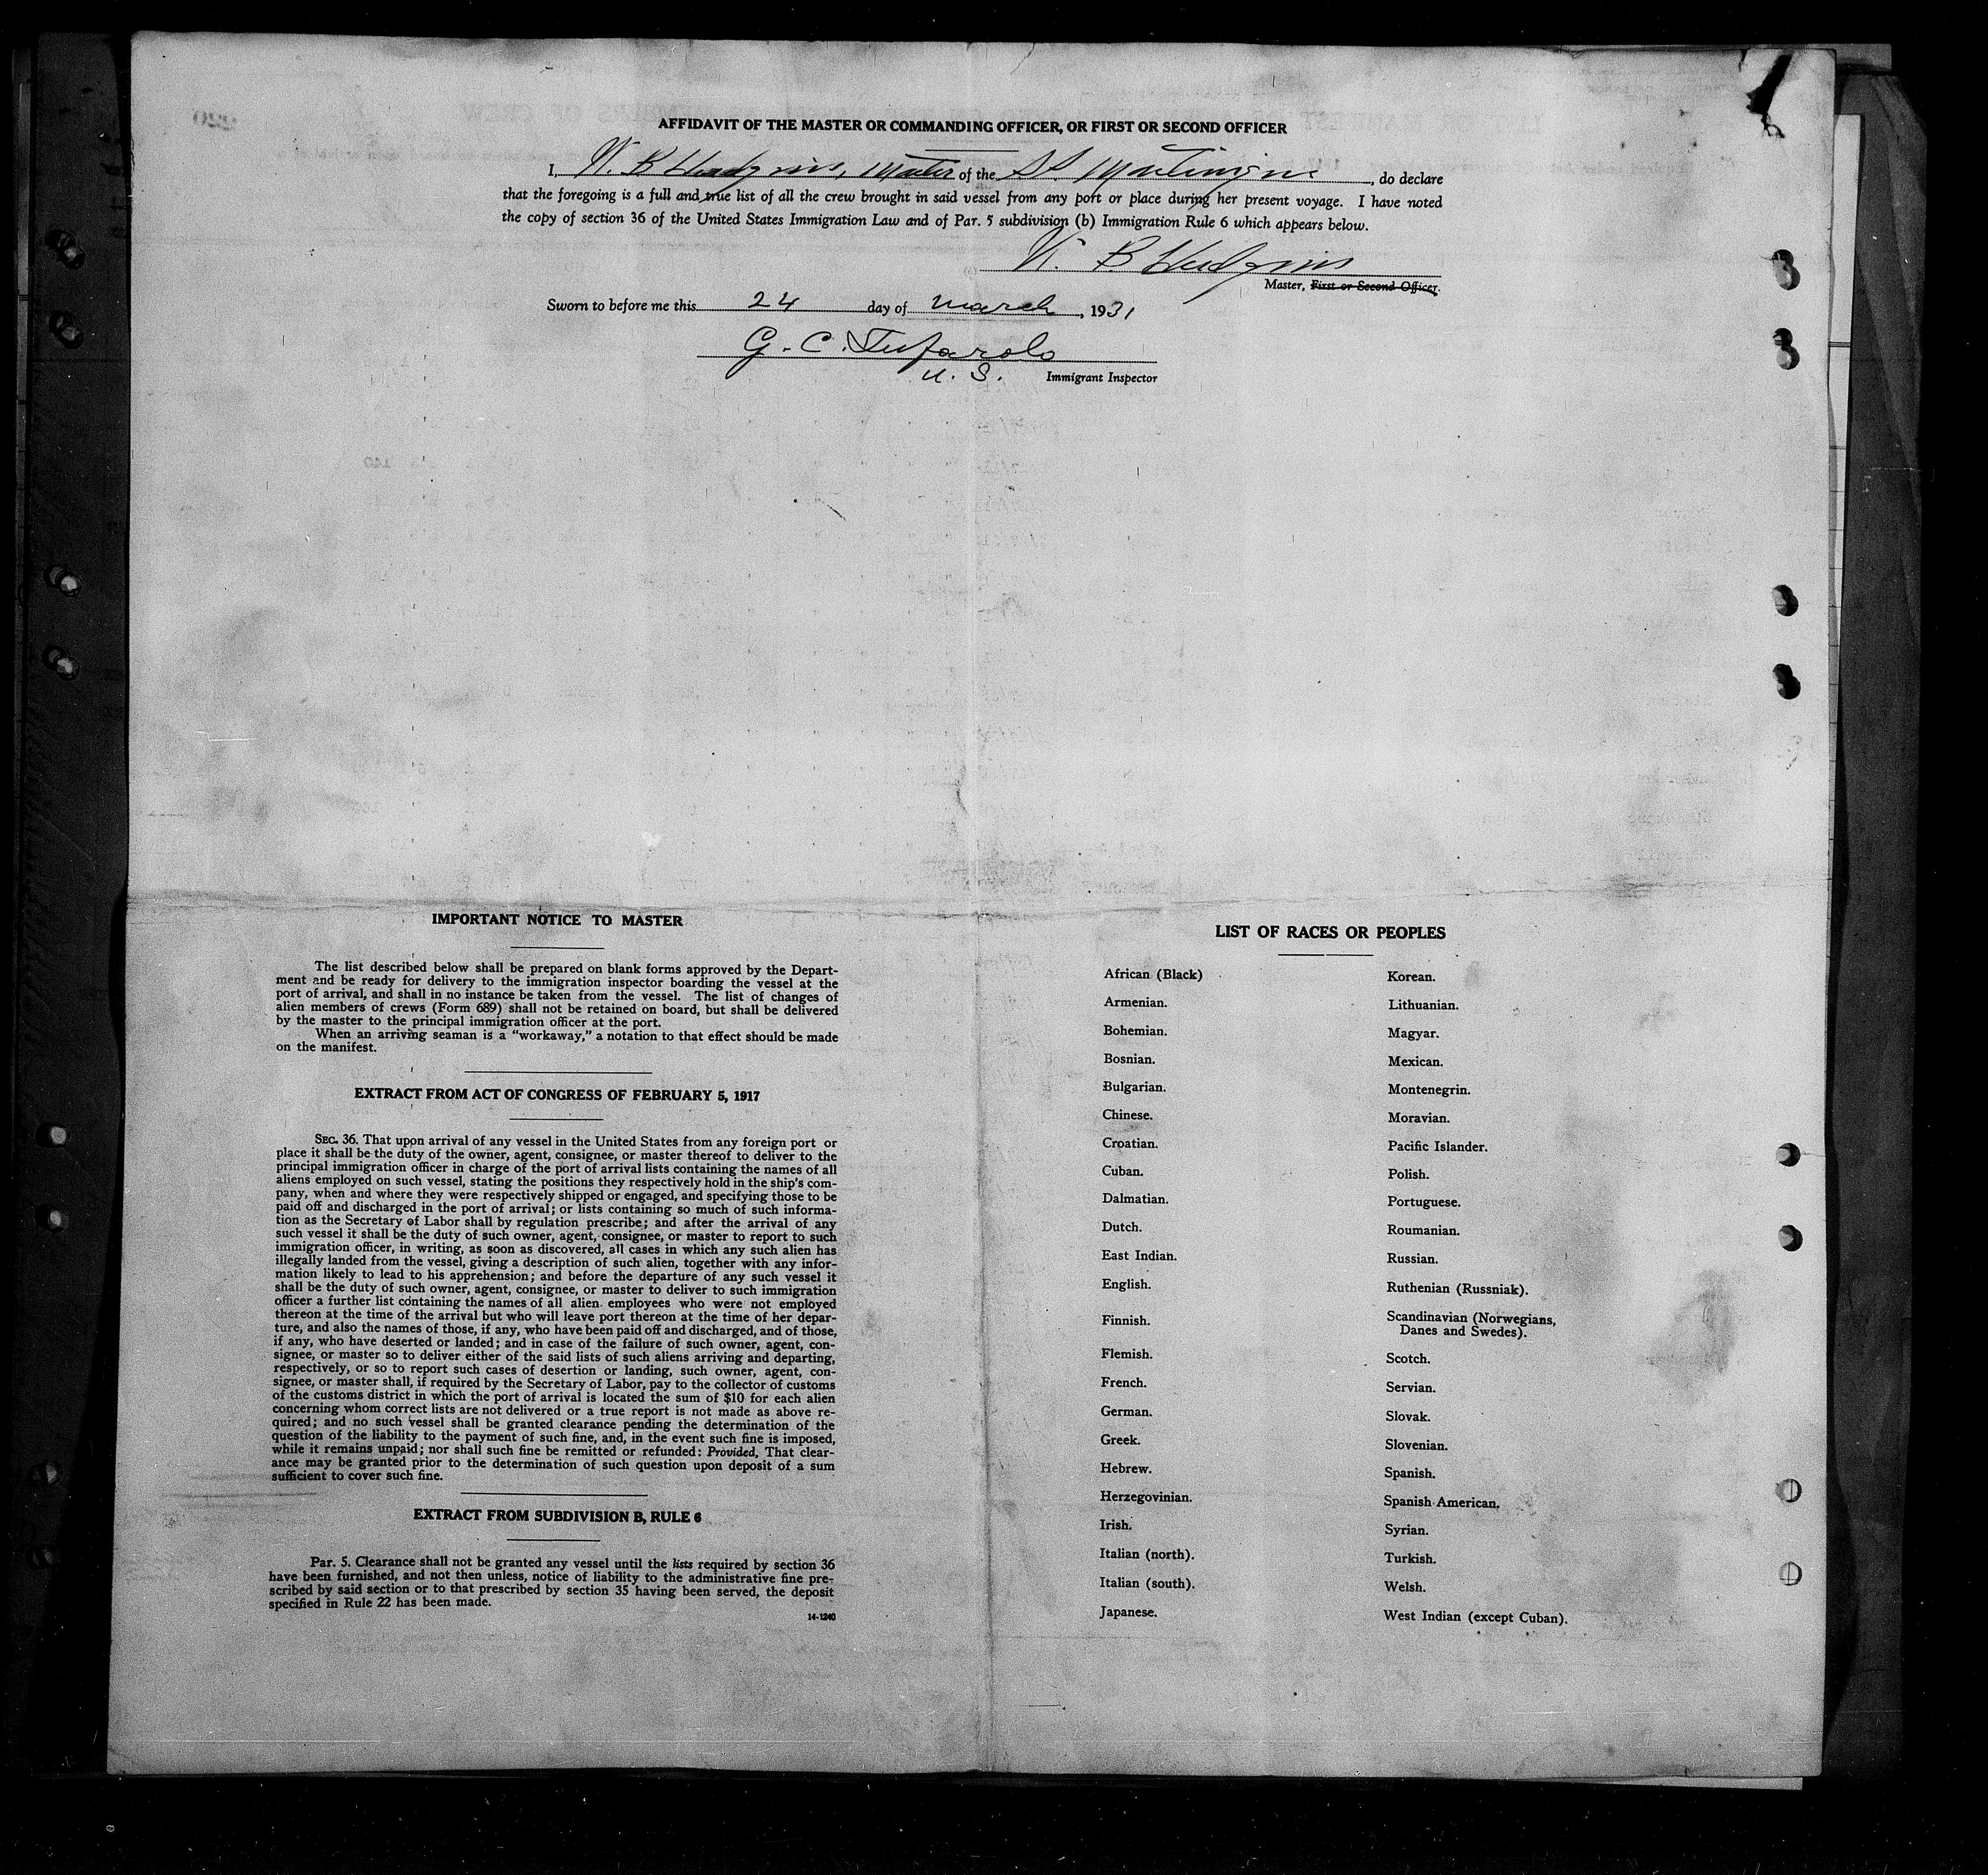 AFFIDAVIT OF THE MASTER OR COMMANDING OFFICER, OR FIRST OR SECOND OFFICER
I, W. B Hudgins, Master of the St. , do declare
that the foregoing is a full and true list of all the crew brought in said vessel from any port or place during her present voyage. I have noted
the copy of section 36 of the United States Immigration Law and of Par. 5 subdivision (b) Immigration Rule 6 which appears below.
W. B Hudgins
Master, First or Second Officer.
Sworn to before me this 24 day of march, 1931
G. C. Tufarolo
U. S. Immigrant Inspector
IMPORTANT NOTICE TO MASTER
The list described below shall be prepared on blank forms approved by the Depart-
ment and be ready for delivery to the immigration inspector boarding the vessel at the
port of arrival, and shall in no instance be taken from the vessel. The list of changes of
alien members of crews (Form 689) shall not be retained on board, but shall be delivered
by the master to the principal immigration officer at the port.
When an arriving seaman is a "workaway," a notation to that effect should be made
on the manifest.
EXTRACT FROM ACT OF CONGRESS OF FEBRUARY 5, 1917
SEC. 36. That upon arrival of any vessel in the United States from any foreign port or
place it shall be the duty of the owner, agent, consignee, or master thereof to deliver to the
principal immigration officer in charge of the port of arrival lists containing the names of all
aliens employed on such vessel, stating the positions they respectively hold in the ship's com-
pany, when and where they were respectively shipped or engaged, and specifying those to be
paid off and discharged in the port of arrival; or lists containing so much of such informa-
tion as the Secretary of Labor shall by regulation prescribe; and after the arrival of any
such vessel it shall be the duty of such owner, agent, consignee, or master to report to such
immigration officer, in writing, as soon as discovered, all cases in which any such alien has
illegally landed from the vessel, giving a description of such alien, together with any infor-
mation likely to lead to his apprehension; and before the departure of any such vessel it
shall be the duty of such owner, agent, consignee, or master to deliver to such immigration
officer a further list containing the names of all alien employees who were not employed
thereon at the time of the arrival but who will leave port thereon at the time of her depar-
ture, and also the names of those, if any, who have been paid off and discharged, and of those,
if any, who have deserted or landed; and in case of the failure of such owner, agent, con-
signee, or master so to deliver either of the said lists of such aliens arriving and departing,
respectively, or so to report such cases of desertion or landing, such owner, agent, con-
signee, or master shall, if required by the Secretary of Labor, pay to the collector of customs
of the customs district in which the port of arrival is located the sum of $10 for each alien
concerning whom correct lists are not delivered or a true report is not made as above re-
quired; and no such vessel shall be granted clearance pending the determination of the
question of the liability to the payment of such fine, and, in the event such fine is imposed,
while it remains unpaid; nor shall such fine be remitted or refunded: Provided, That clear-
ance may be granted prior to the determination of such question upon deposit of a sum
sufficient to cover such fine.
EXTRACT FROM SUBDIVISION B, RULE 6
Par. 5. Clearance shall not be granted any vessel until the lists required by section 36
have been furnished, and not then unless, notice of liability to the administrative fine pre-
scribed by said section or to that prescribed by section 35 having been served, the deposit
specified in Rule 22 has been made.
14-1240
LIST OF RACES OR PEOPLES
African (Black)
Armenian.
Bohemian.
Bosnian.
Bulgarian.
Chinese.
Croatian.
Cuban.
Dalmatian.
Dutch.
East Indian.
English.
Finnish.
Flemish.
French.
German.
Greek.
Hebrew.
Herzegovinian.
Irish.
Italian (north).
Italian (south).
Japanese.
Korean.
Lithuanian.
Magyar.
Mexican.
Montenegrin.
Moravian.
Pacific Islander.
Polish.
Portuguese.
Roumanian.
Russian.
Ruthenian (Russniak).
Scandinavian (Norwegians,
Danes and Swedes).
Scotch.
Servian.
Slovak.
Slovenian.
Spanish.
Spanish American.
Syrian.
Turkish.
Welsh.
West Indian (except Cuban).